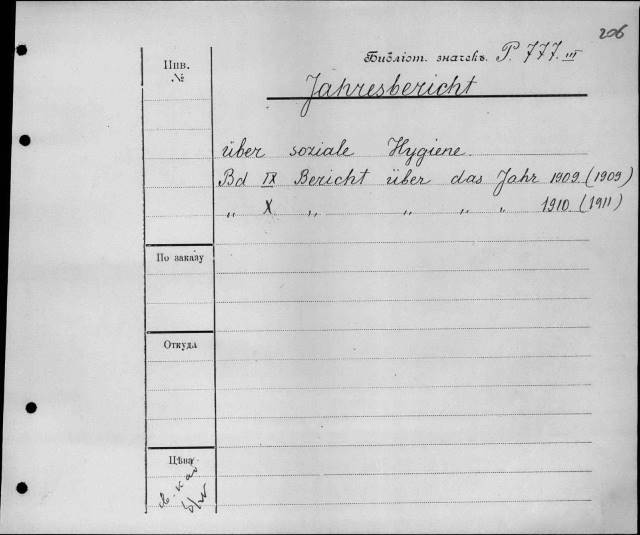 206
Библіот. значекъ. P. 777. III
Jahresbericht
Инв.
№
über soziale Hygiene.
Bd IX Bericht über das Jahr 1909. (1909)
„ X „ „ „ „ 1910. (1911)
По заказу
Откуда
Цѣна